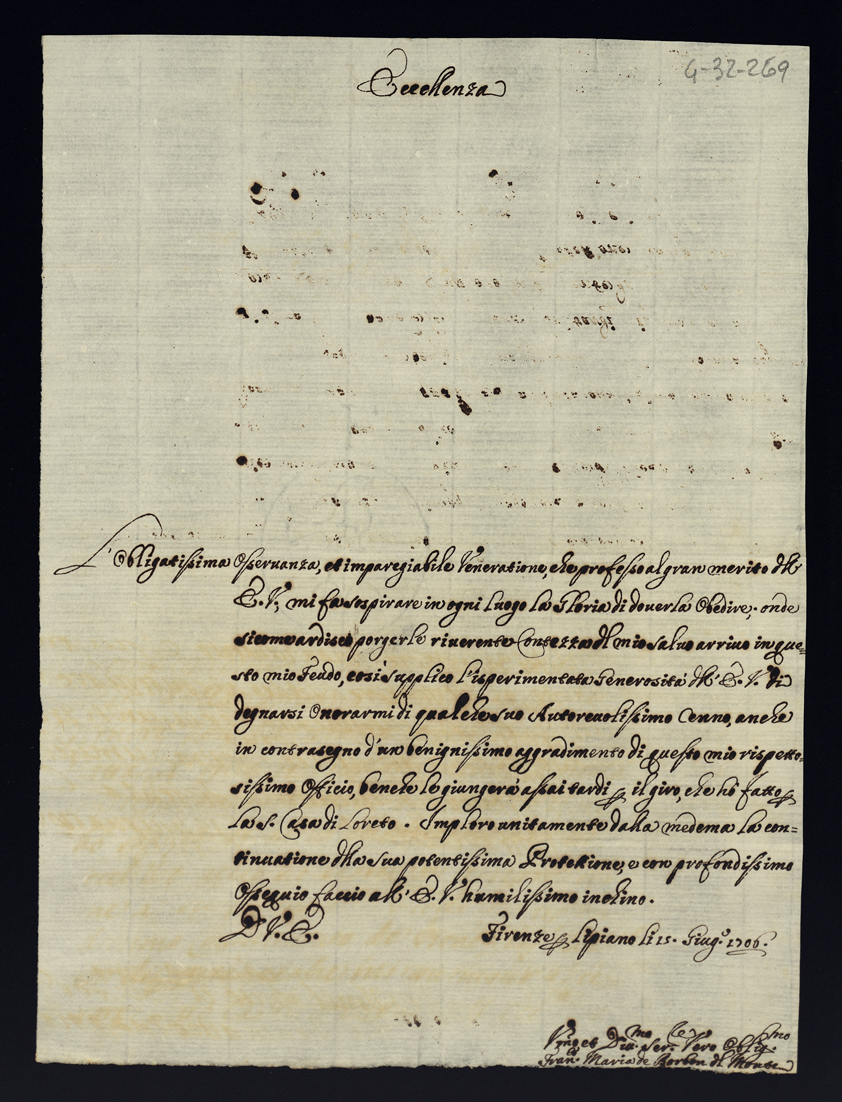 4-32-269
Eccellenza
L'Obligatissima Osseruanza, et impareggiabile Veneratione, che professo al gran merito dell'
E. V., mi fa sospirare in ogni luogo la Gloria di douerla Obedire; onde
porgerle riuerente Contezza del mio saluo arriuo in que=
sto mio Feudo, così supplico l'isperimentata Generosità dell' E. V. di
degnarsi Onorarmi di qualche suo Autoreuolissimo Cenno, anche
in contrasegno d'un benignissimo aggradimento di questo mio rispetto=
sissimo Officio, benche le giungerà assai tardi il giro, che hò fatto
la S. Casa di Loreto. Imploro unitamente dalla medema la con=
tinuatione della sua potentissima Protettione, e con profondissimo
Ossequio faccio all' E. V. humilissimo inchino.
D. V. E.
Firenze Lipiano li 15. Giug.º 1706.
Ser.re Vero Oblig.mo
Fran.co Maria de Borbon del Monte